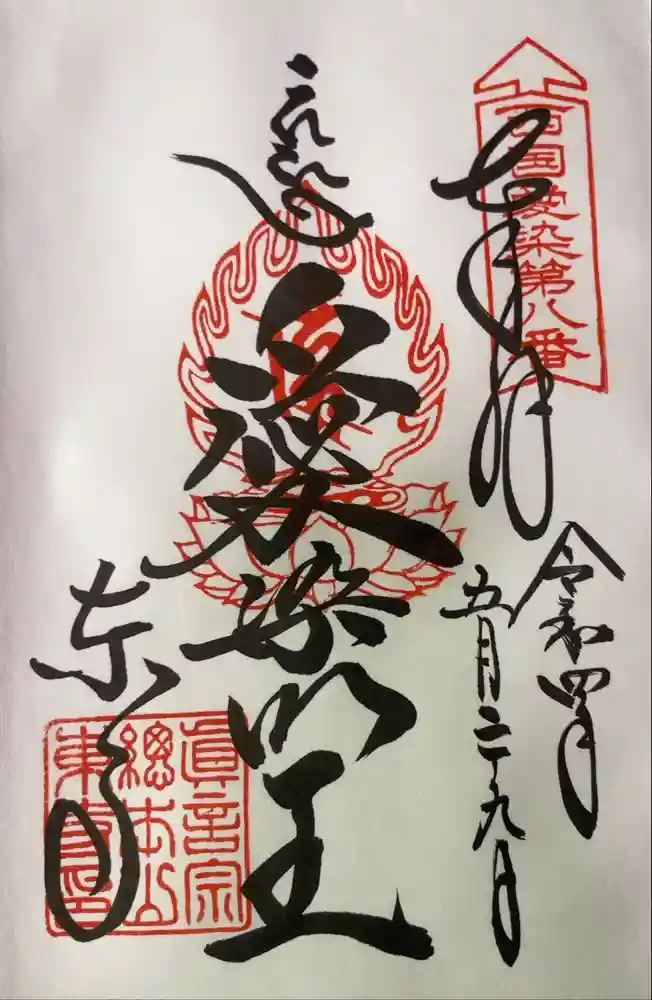 西国愛染第八番
奉拝
令和四年
五月二九日
愛染明王
東寺
眞言宗
總本山
東寺印